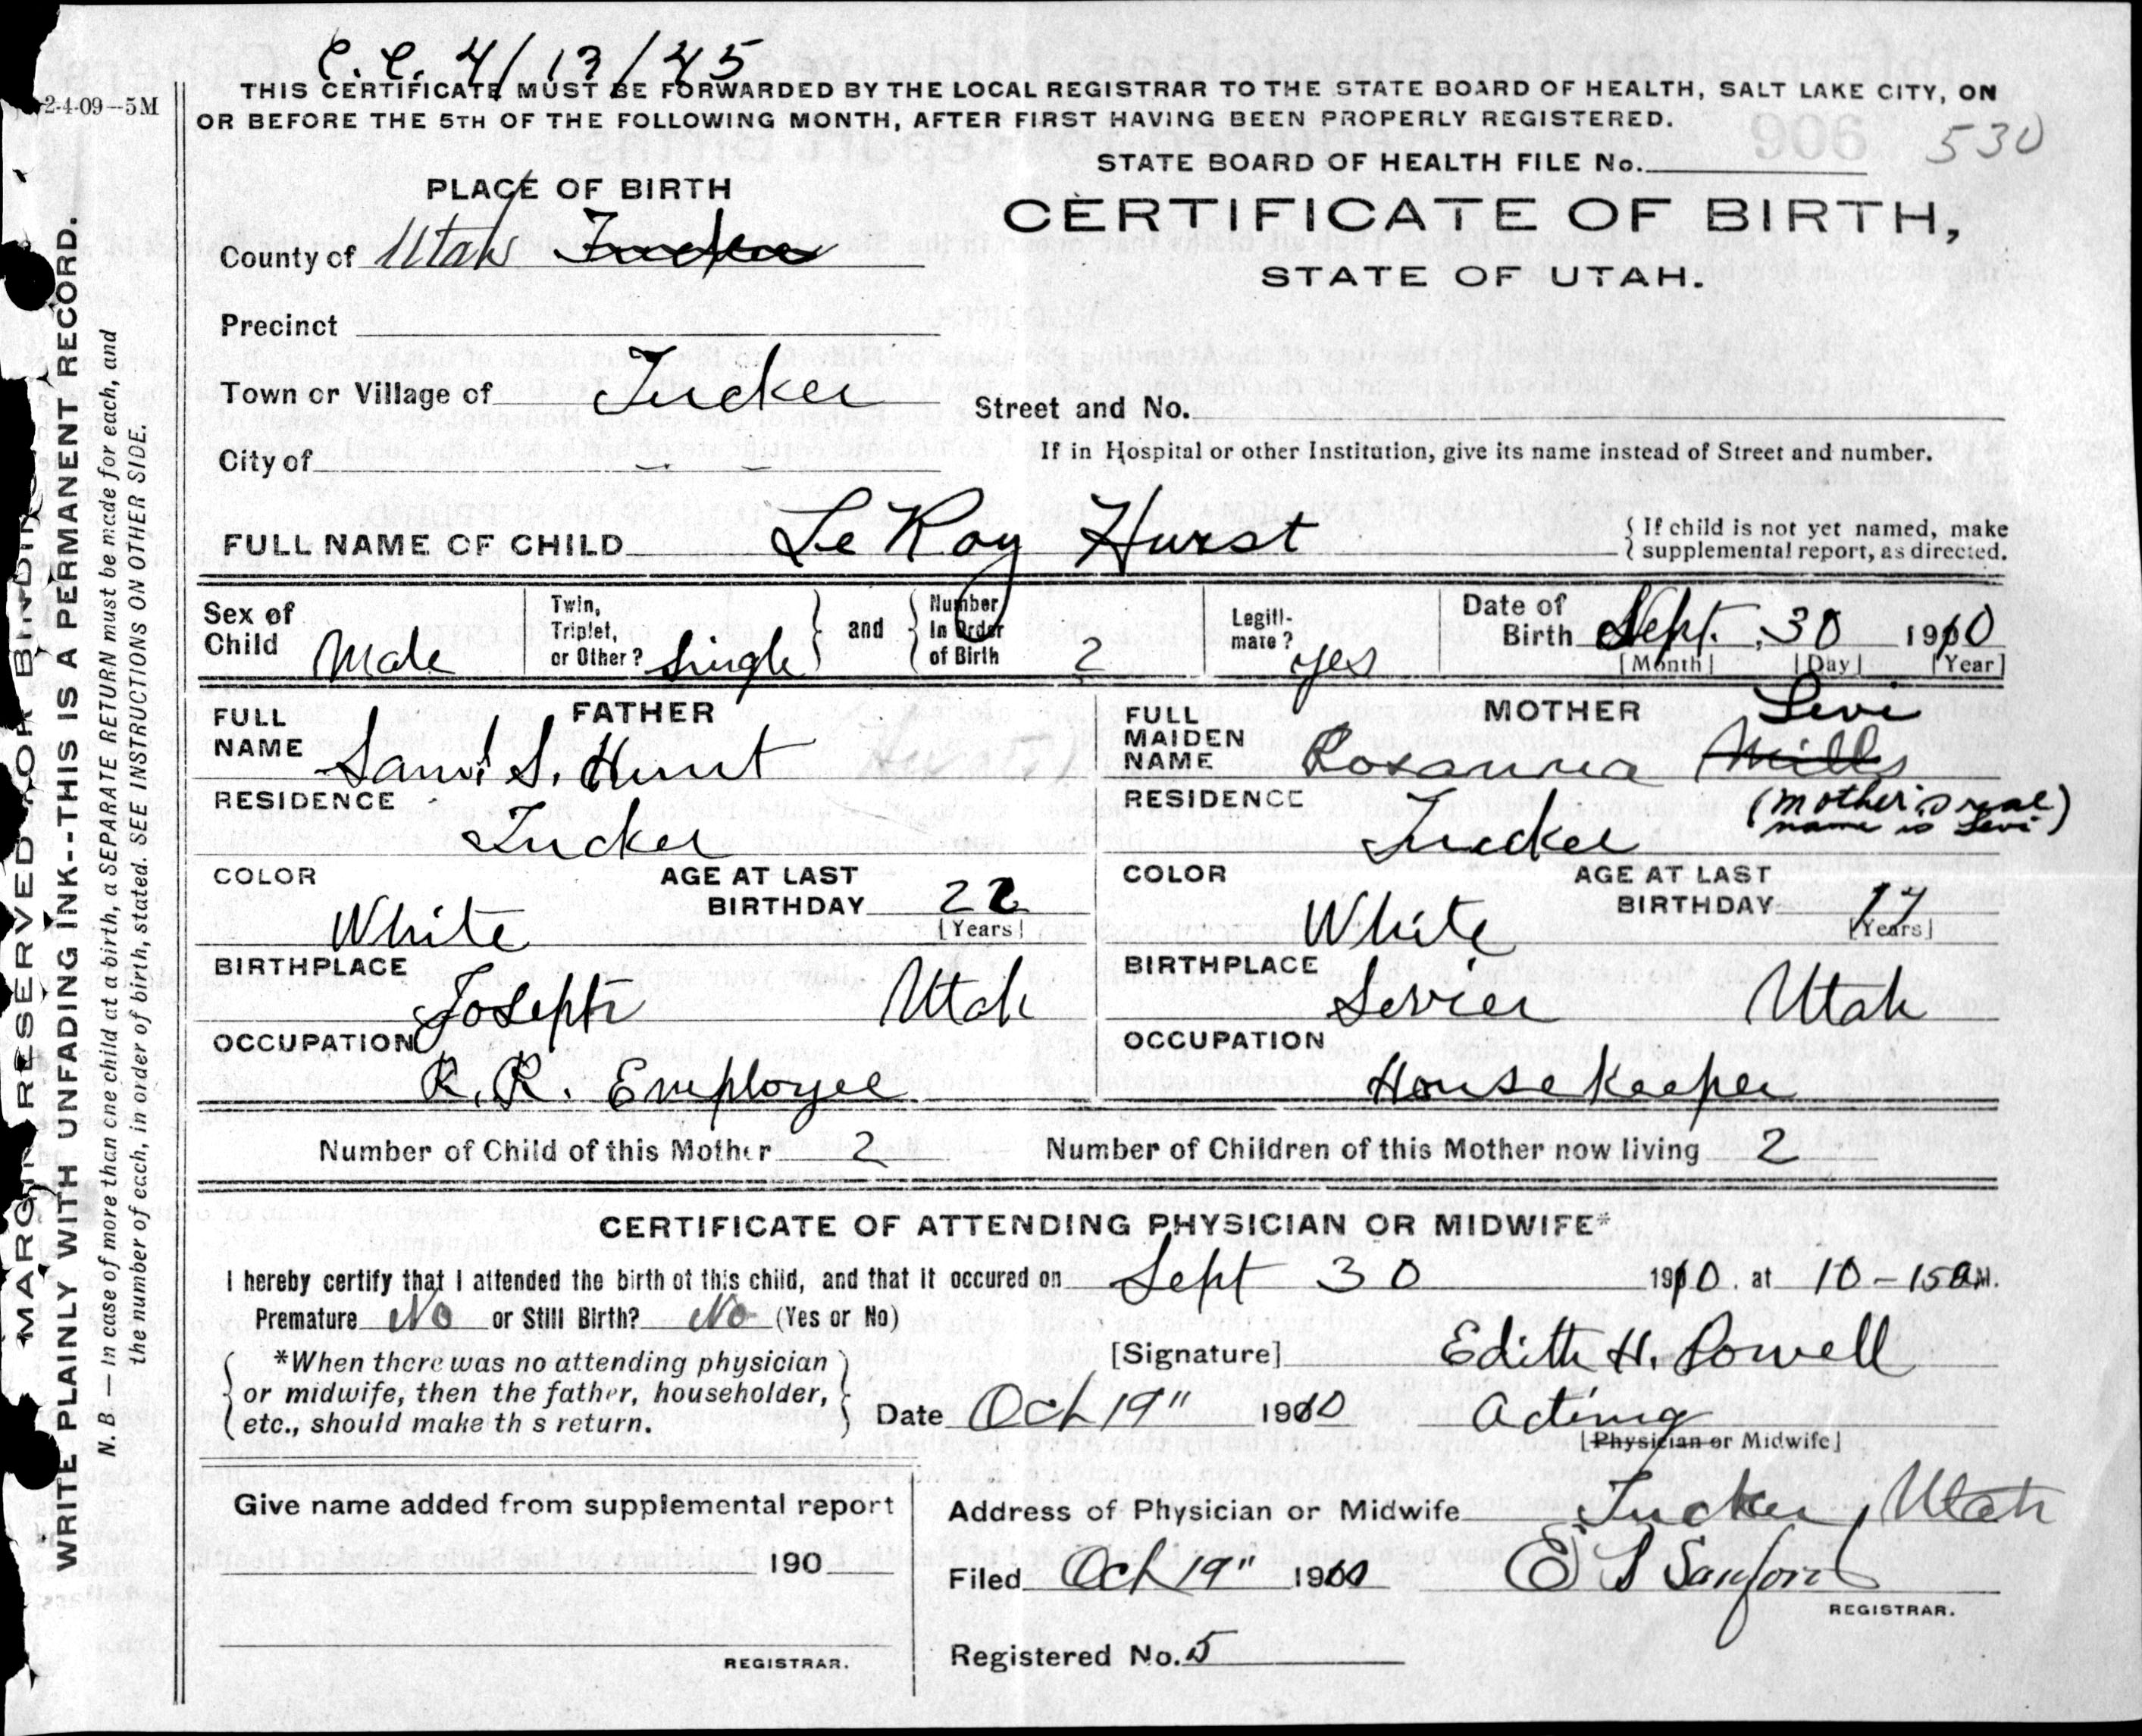 C.C. 4/13/45
THIS CERTIFICATE MUST BE FORWARDED BY THE LOCAL REGISTRAR TO THE STATE BOARD OF HEALTH, SALT LAKE CITY, ON
2-4-09--5M
OR BEFORE THE 5TH OF THE FOLLOWING MONTH, AFTER FIRST HAVING BEEN PROPERLY REGISTERED.
906 530
STATE BOARD OF HEALTH FILE No.
PLACE OF BIRTH
CERTIFICATE OF BIRTH,
STATE OF UTAH.
County of Utah Tucker
Precinct
Town or Village of Tucker
Street and No.
City of
If in Hospital or other Institution, give its name instead of Street and number.
FULL NAME OF CHILD Le Roy Hurst
{ If child is not yet named, make
supplemental report, as directed.
Sex of Child Male
Twin, Triplet, or Other? Single } and { Number In Order of Birth 2
Legiti-mate? yes
Date of Birth Sept. 30 1910
[Month] [Day] [Year]
FATHER
FULL NAME Saml S. Hurst
RESIDENCE Tucker
COLOR White
AGE AT LAST BIRTHDAY 22
[Years]
BIRTHPLACE Joseph Utah
OCCUPATION R. R. Employee
MOTHER
FULL MAIDEN NAME Rosanna Mills Levi
(mother's real
name is Levi)
RESIDENCE Tucker
COLOR White
AGE AT LAST BIRTHDAY 17
[Years]
BIRTHPLACE Sevier Utah
OCCUPATION Housekeeper
Number of Child of this Mother 2 Number of Children of this Mother now living 2
CERTIFICATE OF ATTENDING PHYSICIAN OR MIDWIFE*
I hereby certify that I attended the birth of this child, and that it occured on Sept 30 1910. at 10-15 a.M.
Premature No or Still Birth? No (Yes or No)
*When there was no attending physician
or midwife, then the father, householder,
etc., should make th s return.
[Signature] Edith H. Powell
Date Oct 19" 1910 Acting
[Physician or Midwife]
Give name added from supplemental report
190
REGISTRAR.
Address of Physician or Midwife Tucker, Utah
Filed Oct 19" 1910 E S Sanford
REGISTRAR.
Registered No. 5
MARGIN RESERVED FOR BINDING
WRITE PLAINLY WITH UNFADING INK--THIS IS A PERMANENT RECORD.
N. B. — In case of more than one child at a birth, a SEPARATE RETURN must be made for each, and
the number of each, in order of birth, stated. SEE INSTRUCTIONS ON OTHER SIDE.